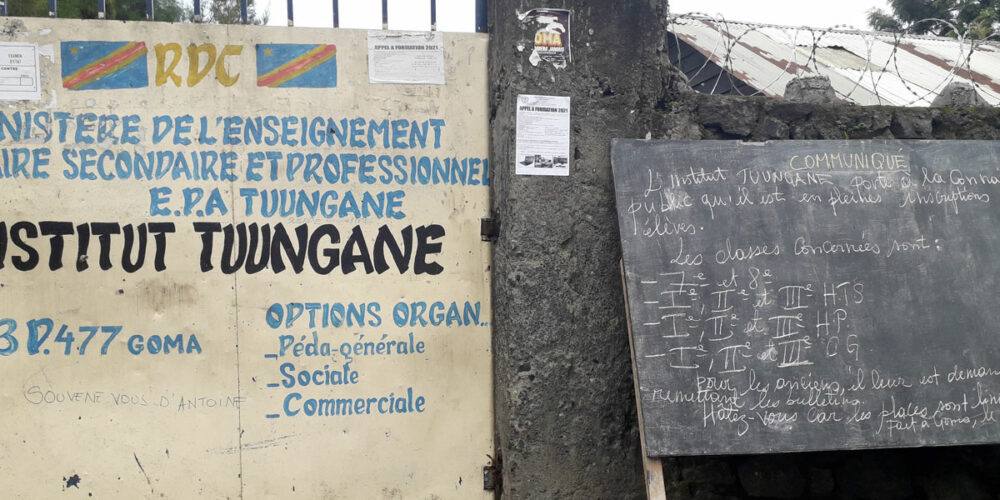 RDC
APPEL A FORMATION 2021
NISTERE DE L'ENSEIGNEMENT
AIRE SECONDAIRE ET PROFESSIONNEL
E.P.A TUUNGANE
NSTITUT TUUNGANE
OPTIONS ORGAN...
3 P.477 GOMA
_Péda-générale
_Sociale
_Commerciale
SOUVENE VOUS D'ANTOINE
APPEL A FORMATION 2021
COMMUNIQUÉ
L'Institut TUUNGANE porte à la Connai
public qu'il est en pleines inscriptions
élèves.
Les classes Concernées sont :
- 7e et 8e
- Ie, IIe et IIIe HTS
- Ie, IIe et IIIe H.P.
- Ie, IIe et IIIe CG
Pour les anciens, il leur est deman
remettant les bulletins.
Hâtez-vous car les places sont lim
Fait à Goma, le